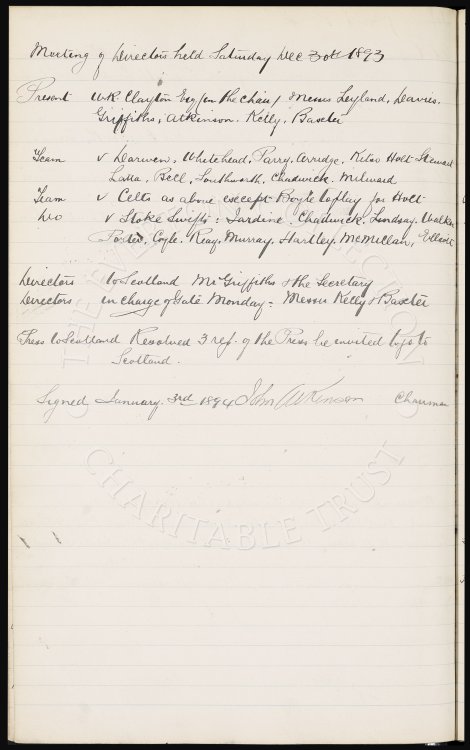 Meeting of Directors held Saturday Dec 30th 1893
Present W.R. Clayton Esq (in the chair) Messrs Leyland, Davies,
Griffiths, Atkinson. Kelly. Baxter
Team v Darwen, Whitehead, Parry, Arridge, Kelso Holt Stewart
Latta, Bell, Southworth, Chadwick. Milward
Team v Celts as above except Boyle to play for Holt
Do v Stoke Swifts: Jardine. Chadwick, Lindsay. Walker
Porter, Coyle. Reay, Murray, Hartley, McMillan, Elliott
Directors to Scotland Mr Griffiths & the Secretary
Directors in charge of Gate Monday - Messrs Kelly & Baxter
Press to Scotland Resolved 3 rep. of the Press be invited to go to
Scotland.
Signed January 3rd 1894 John Atkinson Chairman
CHARITABLE TRUST